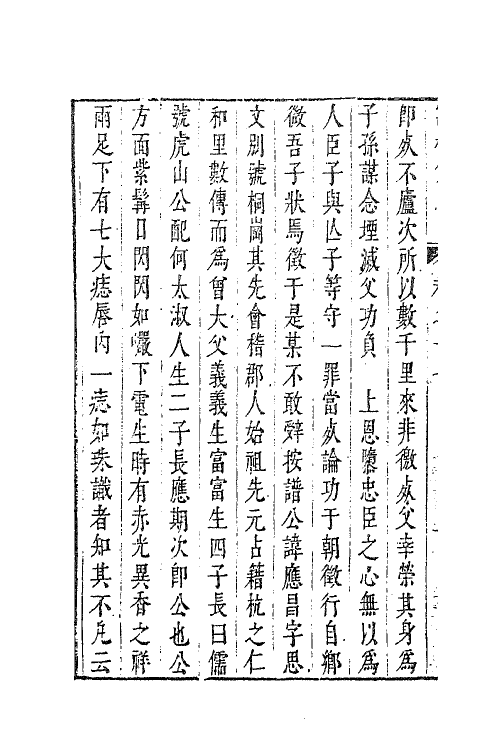 即死不廬次所以數千里來非徼死父幸榮其身爲
子孫謀念堙滅父功負　上恩隳忠臣之心無以爲
人臣子與亾子等守一罪當死論功于朝徵行自鄉
微吾子狀焉徵于是某不敢辤按譜公諱應昌字思
文別號桐崗其先會稽郡人始祖先元占籍杭之仁
和里數傳而爲曾大父義義生富富生四子長曰儒
號虎山公配何太淑人生二子長應期次卽公也公
方面紫髯目閃閃如巖下電生時有赤光異香之祥
兩足下有七大痣脣內一痣如朱識者知其不凡云